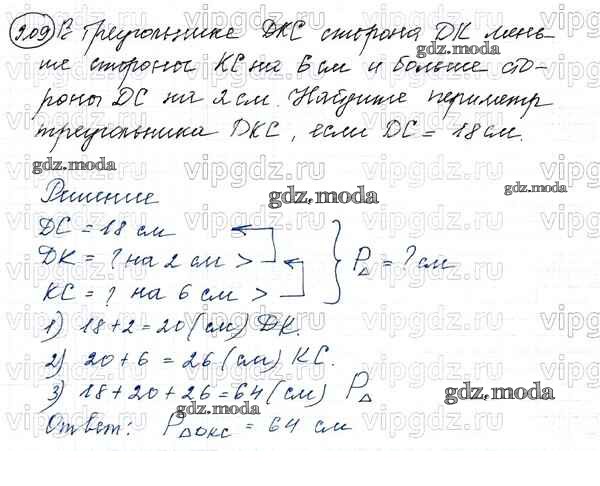 209 В треугольнике DKC сторона DK мень-
ше стороны KC на 6 см и больше сто-
роны DC на 2 см. Найдите периметр
треугольника DKC, если DC = 18 см.
Решение
DC = 18 см
DK = ? на 2 см >
KC = ? на 6 см >
P△ = ? см
1) 18 + 2 = 20 (см) DK.
2) 20 + 6 = 26 (см) KC.
3) 18 + 20 + 26 = 64 (см) P△
Ответ: P△DKC = 64 см
gdz.moda
vipgdz.ru